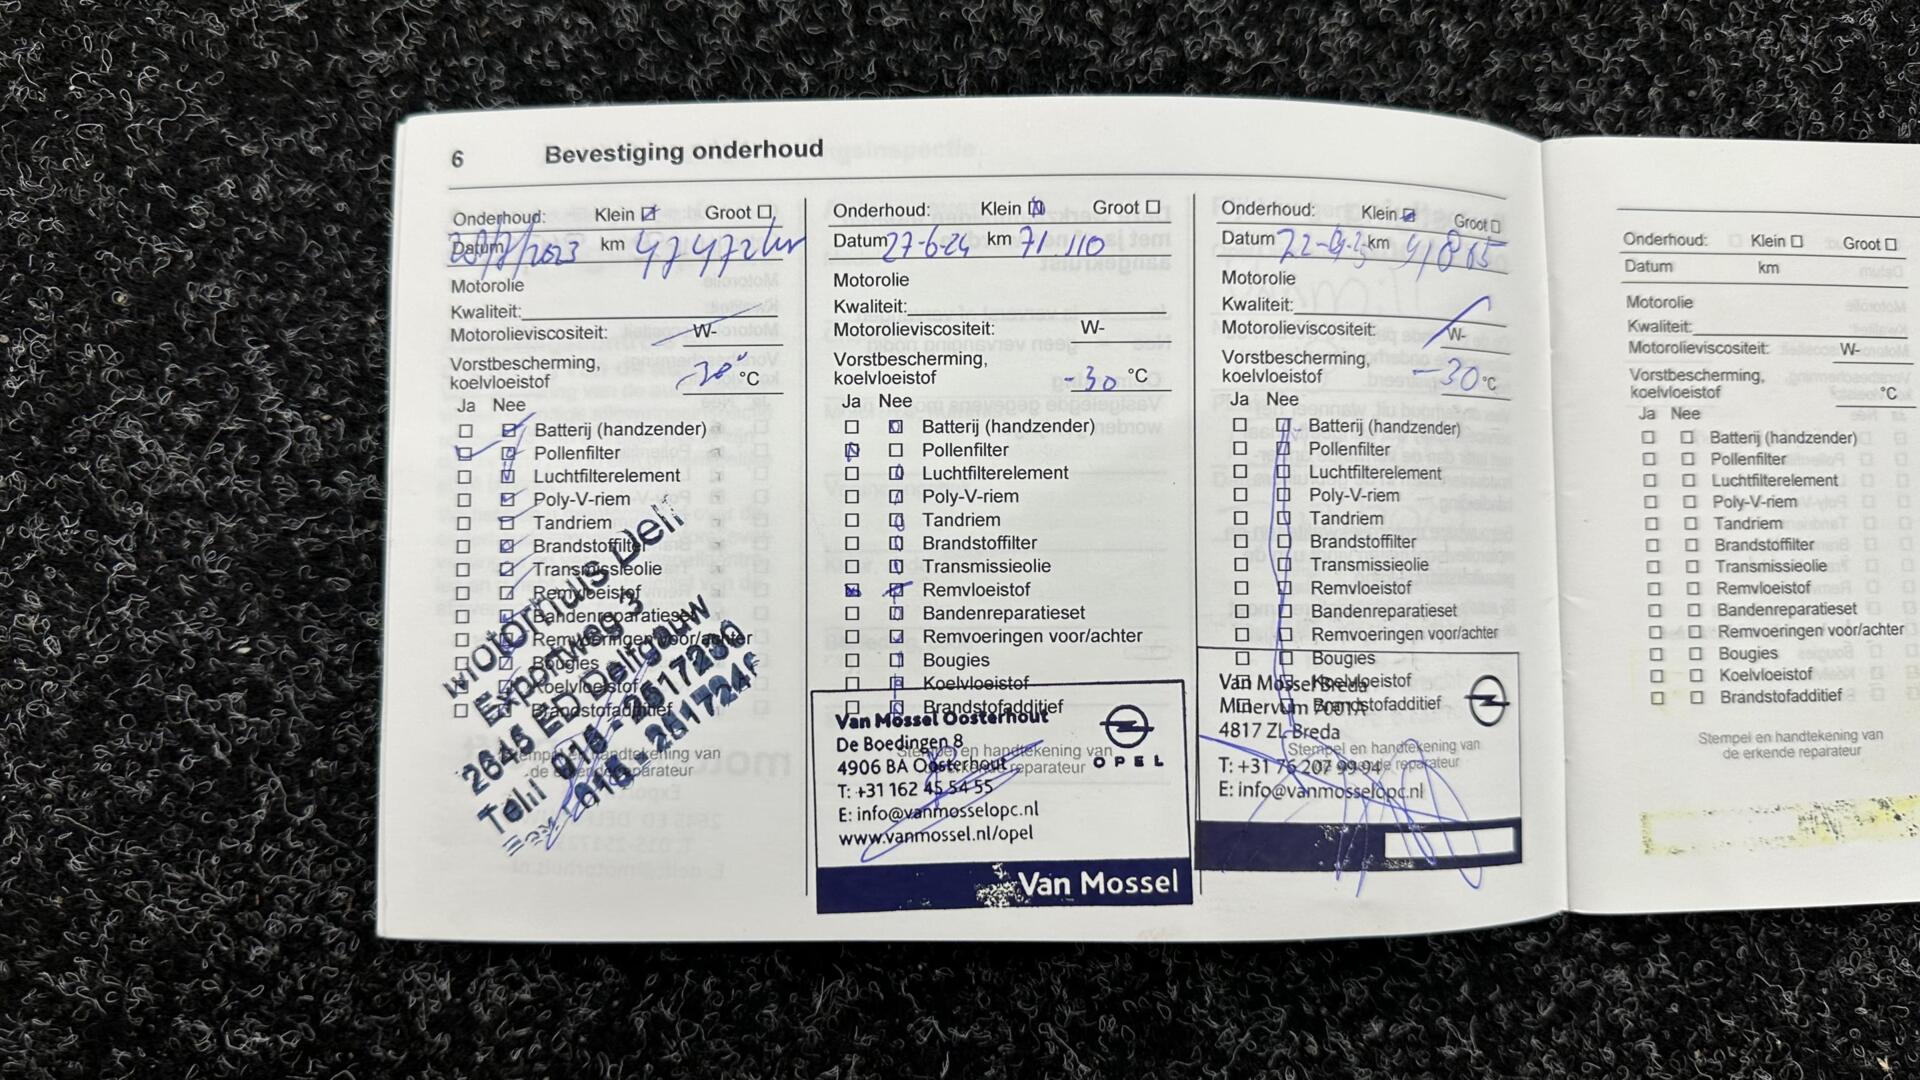 6 Bevestiging onderhoud
Onderhoud: Klein Groot
Datum km 47472km
Motorolie
Kwaliteit:
Motorolieviscositeit: W-
Vorstbescherming,
koelvloeistof -30° °C
Ja Nee
Batterij (handzender)
Pollenfilter
Luchtfilterelement
Poly-V-riem
Tandriem
Brandstoffilter
Transmissieolie
Remvloeistof
Bandenreparatieset
Remvoeringen voor/achter
Bougies
Koelvloeistof
Brandstofadditief
Stempel en handtekening van
de erkende reparateur
Motorhuis Delft
Exportweg 3
2645 ED Delfgauw
Tel: 015 - 2517230
Onderhoud: Klein Groot
Datum 27-6-24 km 71110
Motorolie
Kwaliteit:
Motorolieviscositeit: W-
Vorstbescherming,
koelvloeistof -30 °C
Ja Nee
Batterij (handzender)
Pollenfilter
Luchtfilterelement
Poly-V-riem
Tandriem
Brandstoffilter
Transmissieolie
Remvloeistof
Bandenreparatieset
Remvoeringen voor/achter
Bougies
Koelvloeistof
Brandstofadditief
Stempel en handtekening van
de erkende reparateur
Van Mossel Oosterhout
De Boedingen 8
4906 BA Oosterhout
T: +31 162 45 54 55
E: info@vanmosselopc.nl
www.vanmossel.nl/opel
OPEL
Van Mossel
Onderhoud: Klein Groot
Datum km 91865
Motorolie
Kwaliteit:
Motorolieviscositeit: W-
Vorstbescherming,
koelvloeistof -30 °C
Ja Nee
Batterij (handzender)
Pollenfilter
Luchtfilterelement
Poly-V-riem
Tandriem
Brandstoffilter
Transmissieolie
Remvloeistof
Bandenreparatieset
Remvoeringen voor/achter
Bougies
Koelvloeistof
Brandstofadditief
Stempel en handtekening van
de erkende reparateur
Van Mossel Breda
Minervum 7001A
4817 ZL Breda
T: +31 76 207 99 94
E: info@vanmosselopc.nl
Onderhoud: Klein Groot
Datum km
Motorolie
Kwaliteit:
Motorolieviscositeit: W-
Vorstbescherming,
koelvloeistof °C
Ja Nee
Batterij (handzender)
Pollenfilter
Luchtfilterelement
Poly-V-riem
Tandriem
Brandstoffilter
Transmissieolie
Remvloeistof
Bandenreparatieset
Remvoeringen voor/achter
Bougies
Koelvloeistof
Brandstofadditief
Stempel en handtekening van
de erkende reparateur